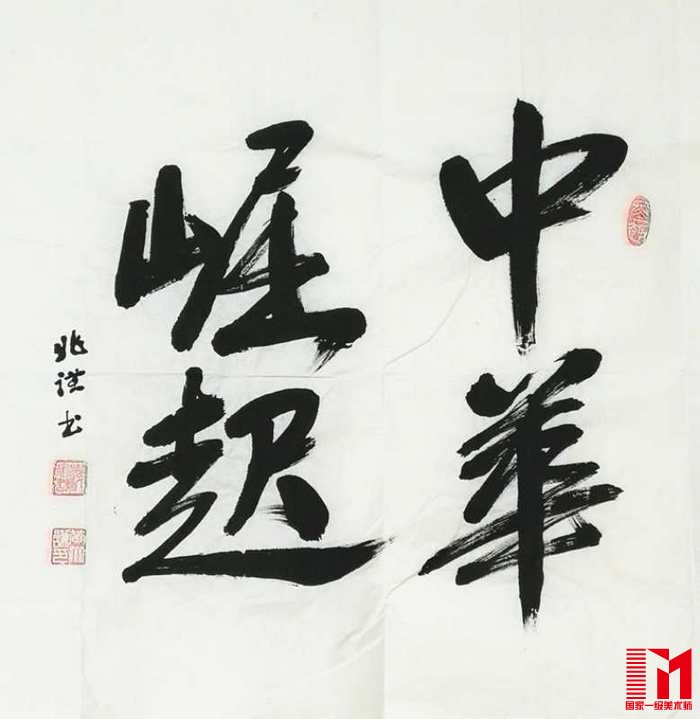 中華
崛起
兆謹书
国家一级美术师